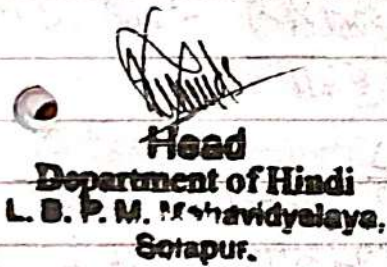 Head
Department of Hindi
L. B. P. M. Mahavidyalaya,
Solapur.